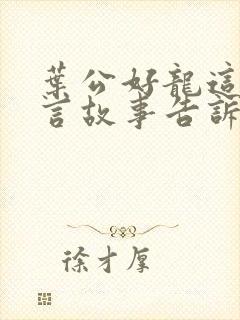 葉公好龍這
言故事告訴
徐才厚